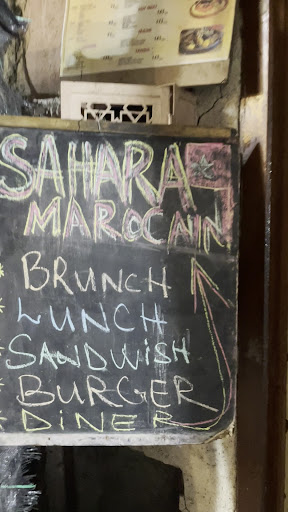 SAHARA
MAROCAIN
* BRUNCH
* LUNCH
* SANDWiSH
* BURGER
* DiNER